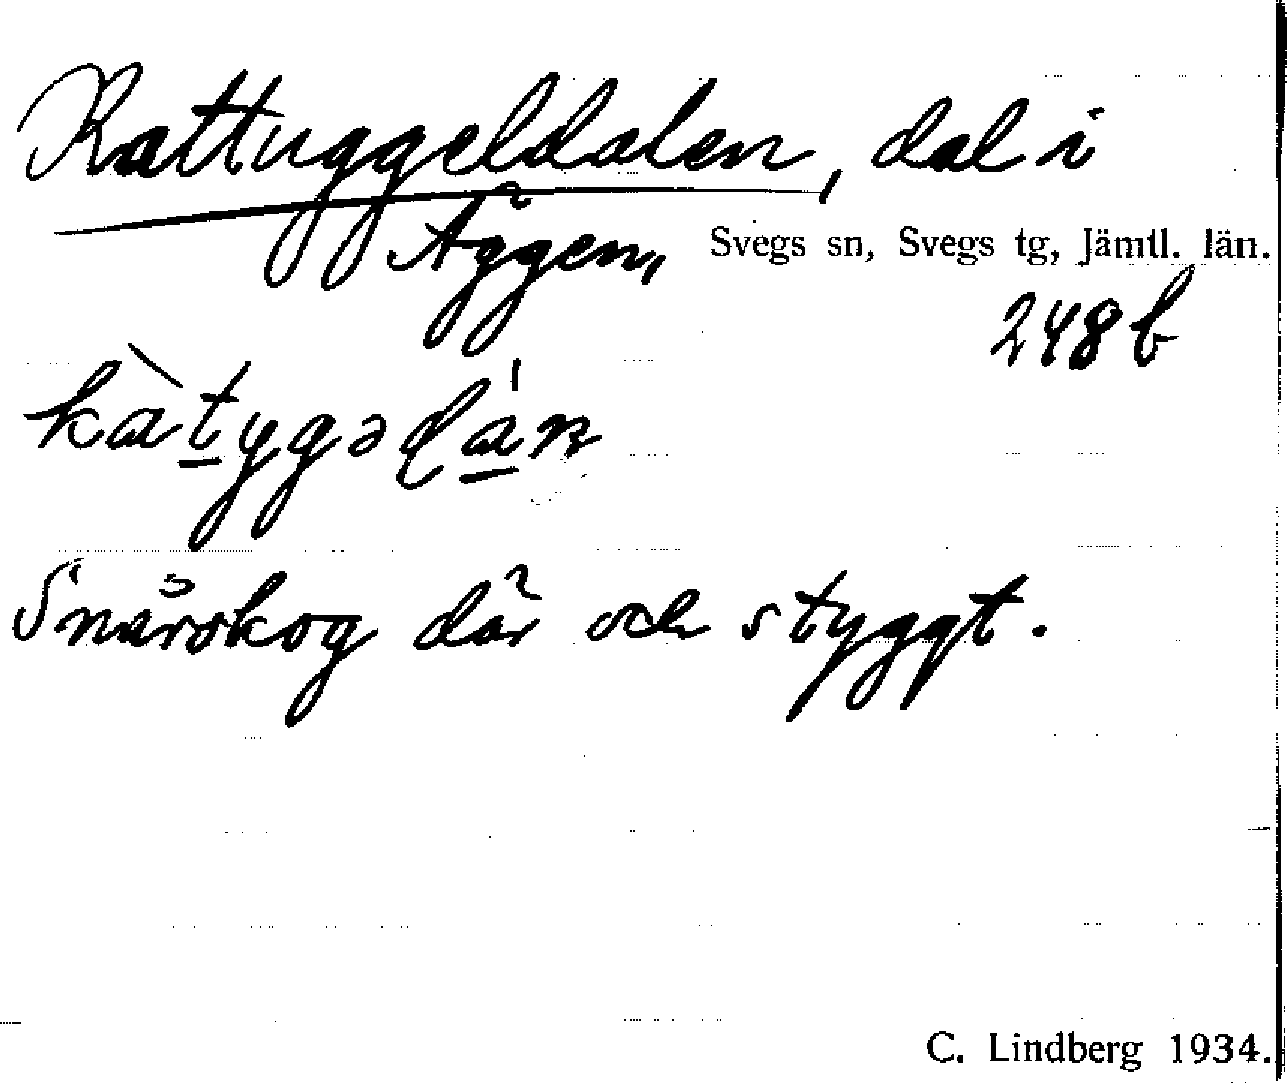 Kattuggeldalen, dal i
Äggen, Svegs sn, Svegs tg, Jämtl. län.
248 b
Snårskog där och styggt.
C. Lindberg 1934.